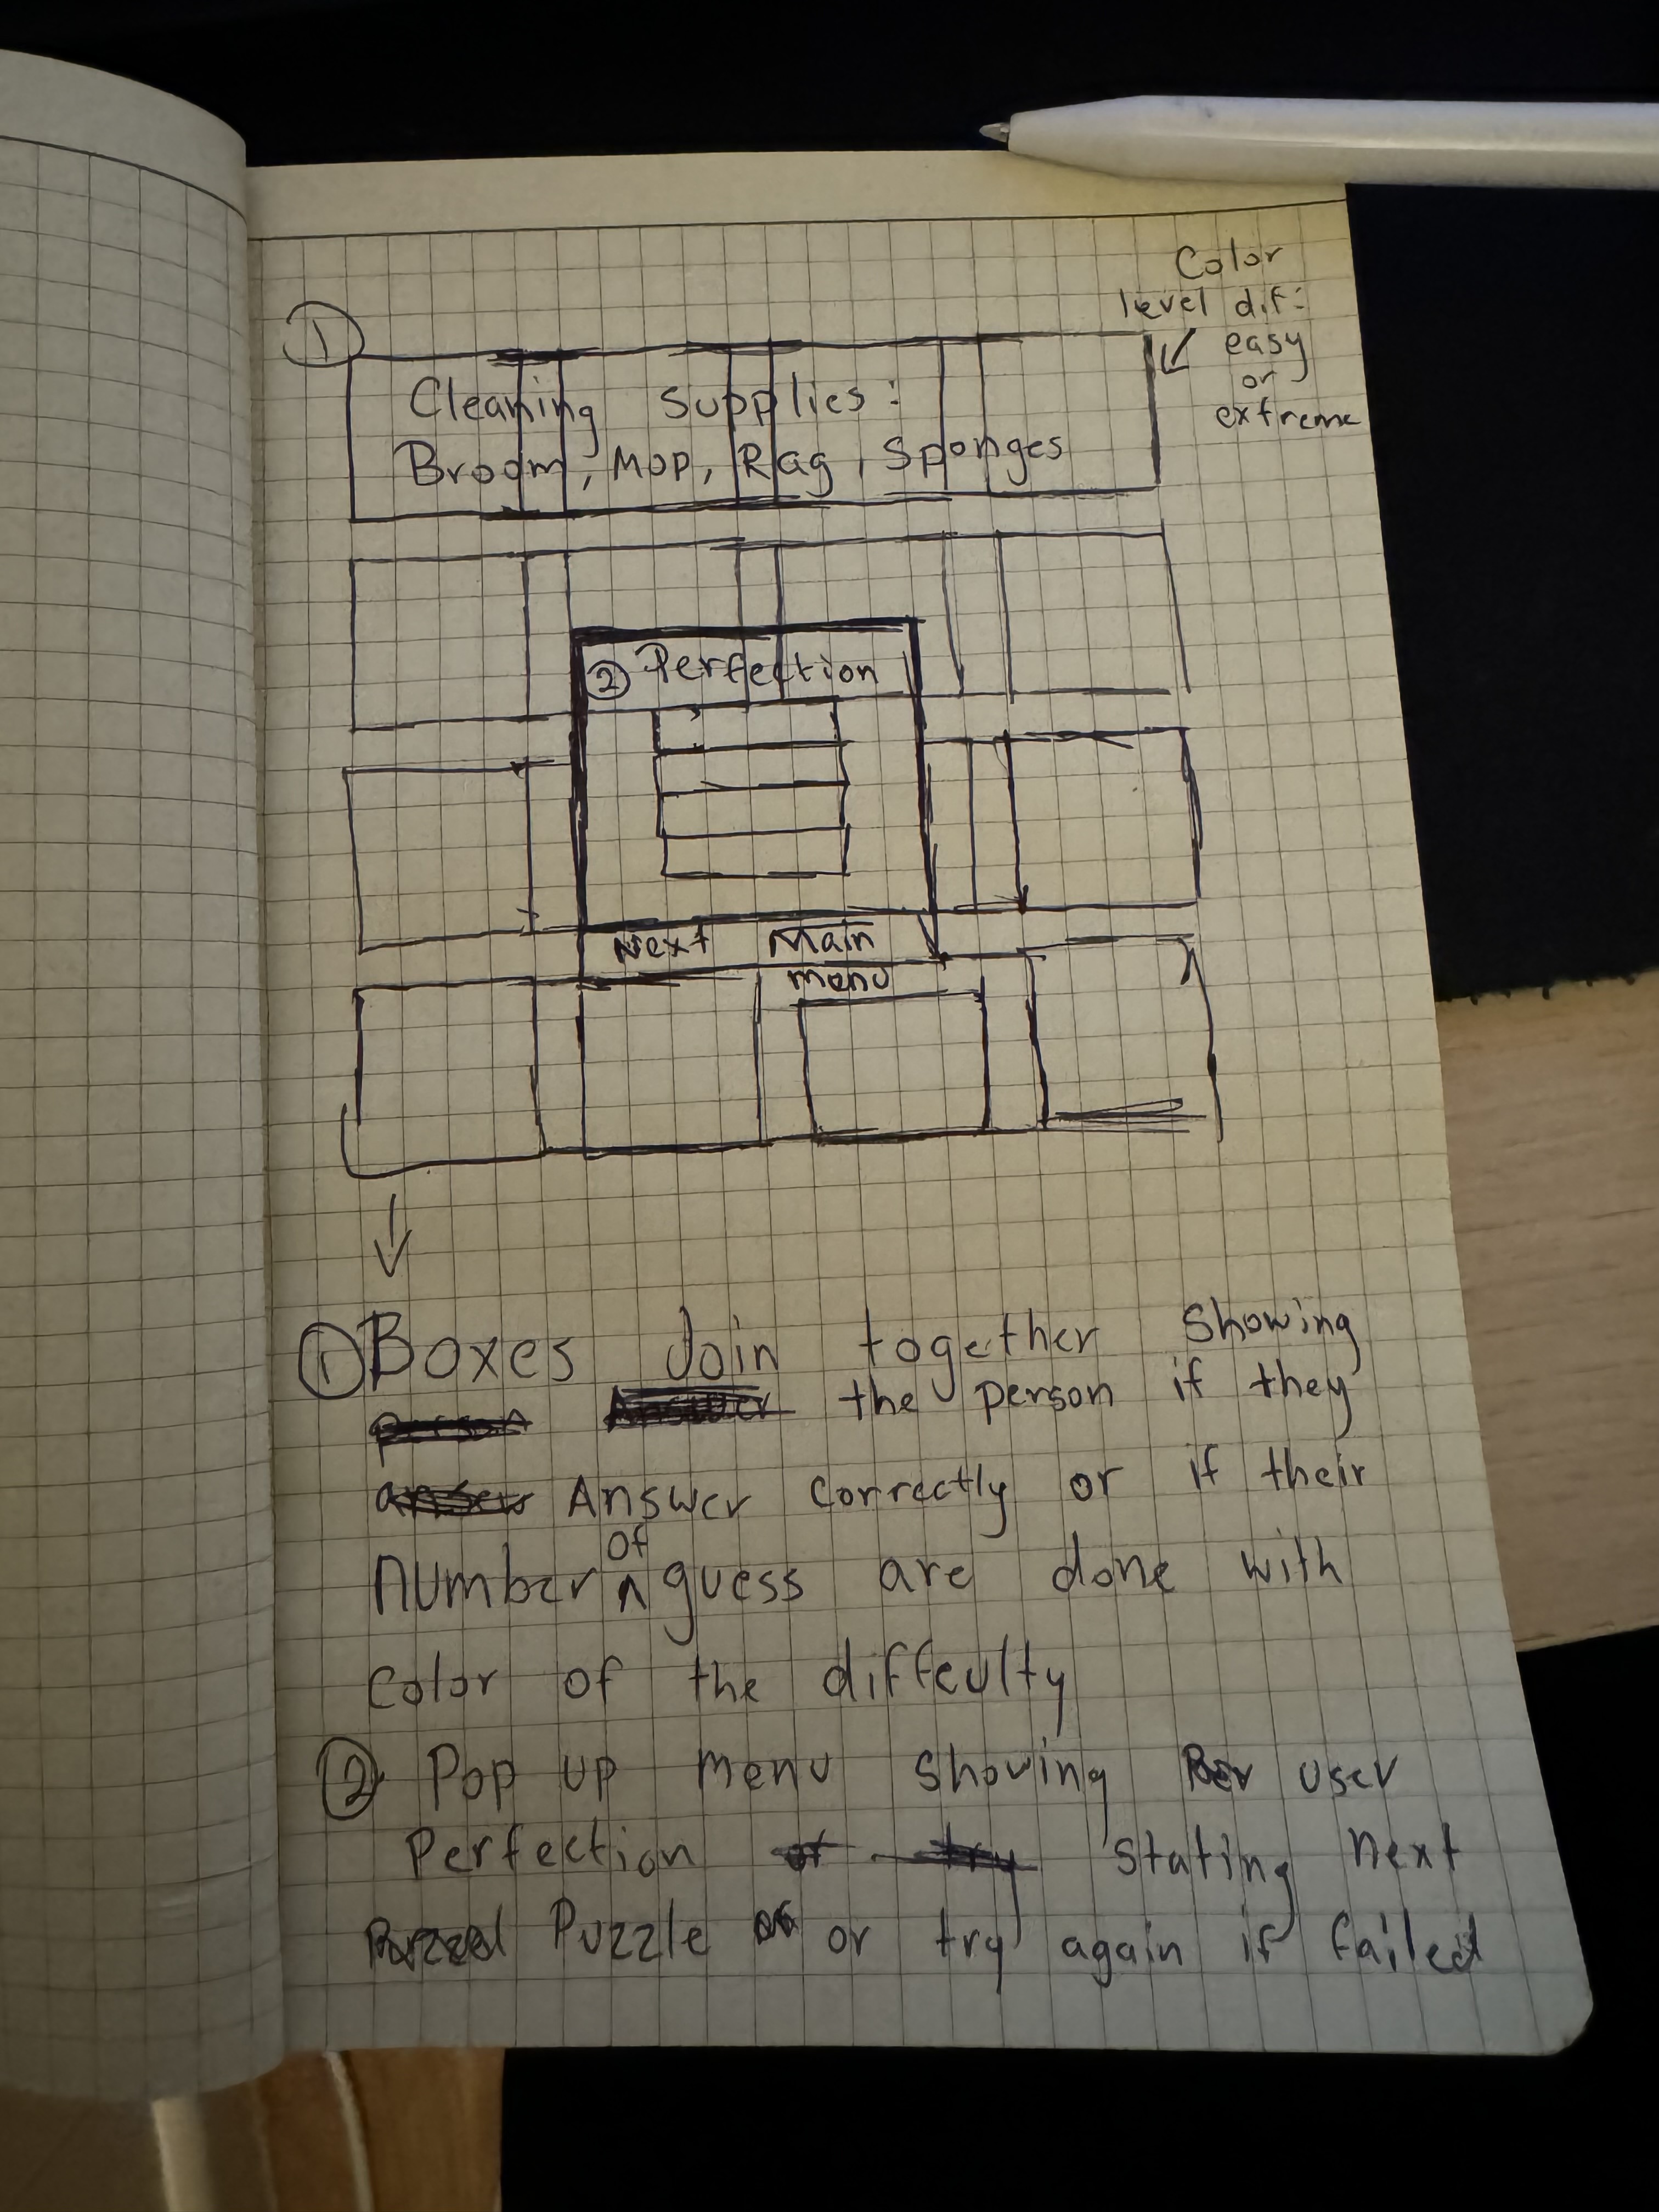 Color
level dif:
easy
or
extreme
①
Cleaning Supplies:
Broom, Mop, Rag, Sponges
② Perfection
Next Main
menu
① Boxes Join together Showing
the person if they
Answer correctly or if their
of
number ^ guess are done with
Color of the diffculty
② Pop up menu showing user
Perfection stating next
Puzzle or try again if failed